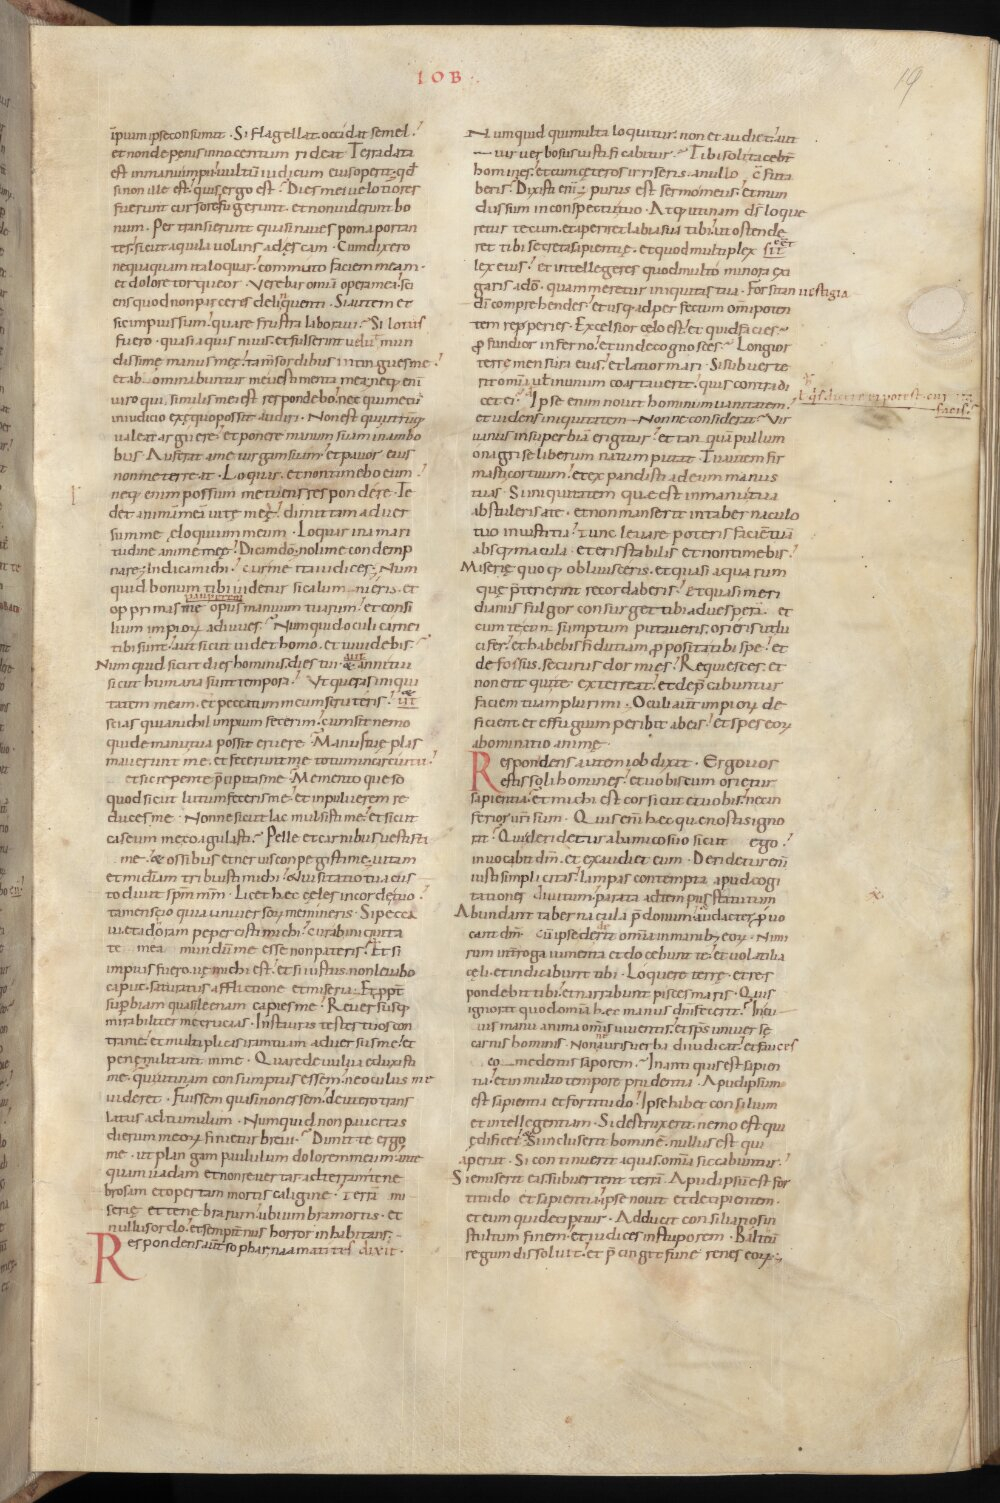 IOB
19
impium ipse consumit. Si flagellat. occidat semel.
et non de penis innocentum rideat Terra data
est in manu impii. vultū iudicum eius operit. qd
si non ille est. quis ergo est. Dies mei velotiores
fuerunt cursore. fugerunt. et non viderunt bo
num. Per transierunt quasi naves poma portan
tes. sicut aquila volans ad escam. Cum dixero
nequaquam ita loquar. commuto faciem meam.
et dolore torqueor. Verebar omīa opera mea. sci
ens quod non parceres delinquenti. Si autem et
sic impius sum. quare frustra laboravi. Si lotus
fuero. quasi aquis nivis. et fulserint velut mun
dissime manus meę. tam sordibus intingues me
et ab ominabuntur me vestimenta mea. neq enī
viro qui similis mei est respondebo. nec qui mecū
in iudicio ex equo possit audiri. Non est qui utrūq
valeat arguere. et ponere manum suam in ambo
bus Auferat a me virgam suam. et pavor eius
non me terreat. Loquar. et non timebo eum.
neq enim possum metuens respondere. Te
det animā meā vitę meę. dimittam adver
sum me eloquium meum. Loquar in amari
tudine animę meę. Dicam dō. noli me condemp
nare. Indica michi cur me ita iudices. Num
quid bonum tibi videtur si calumnieris. et
pauperem
opprimas me opus manuum tuarum. et consi
lium impiorū adiuves. Numquid oculi carnei
tibi sunt. aut sicut videt homo. et tu videbis.
Numquid sicut dies hominis. dies tui. et anni tui
sicut humana sunt tempora. Ut queras iniqui
tatem meam. et peccatum meum scruteris. ut
scias quia nichil impium fecerim. cum sit nemo
qui de manu tua possit eruere. Manus tuę plas
maverunt me. et fecerunt me totum in circuitu.
et sic repente p̄cipitas me. Memento queso
quod sicut lutum feceris me. et in pulverem re
duces me. Nonne sicut lac mulsisti me. et sicut
caseum me coagulasti. Pelle et carnibus vestisti
me. & ossibus et nervis conpegisti me. vitam
et mīam tribuisti michi. & visitatio tua cus
todivit spm̄ mm̄. Licet hec celes in corde tuo.
tamen scio quia universorū memineris. Si pecca
vi. et ad oram pepercisti michi. cur ab iniquita
te mea mundū me esse non pateris. Et si
impius fuero. vę michi est. et si iustus. non levabo
caput. saturatus afflictione et miseria. Et ppt
supbiam quasi leenam capies me. Reversusq
mirabiliter me crucias. Instauras testes tuos con
tra me. et multiplicas iram tuam adversus me. et
penę militant in me. Quare de vulva eduxisti
me. qui utinam consumptus essem. ne oculus me
videret. Fuissem quasi non essem. de utero trans
latus ad tumulum. Numquid non paucitas
dierum meorū finietur brevi. Dimitte ergo
me. ut plangam paululum dolorem meum. ante
quam vadam et non revertar. ad terram tene
brosam et opertam mortis caligine. Terrā mi
serię et tenebrarum. ubi umbra mortis. et
nullus ordo. et sempitn̄us horror inhabitans.
Respondens autē sophar naamatites dixit.
Numquid qui multa loquitur. non et audiet. aut
vir verbosus iustificabitur. Tibi soli tacebnt
homines. et cum ceteros irriseris. a nullo cōfuta
beris. Dixisti enī. purus est sermo meus. et mun
dus sum in conspectu tuo. Atq utinam ds loque
retur tecum. et aperiret labia sua tibi. ut ostende
ret tibi secreta sapientię. et quod multiplex sit
lex eius. et intellegeres quod multo minora exi
garis a dō. quam meretur iniquitas tua. Forsitan vestigia
dī comprehendes. et usq ad perfectum omnipoten
tem repperies. Excelsior celo est. et quid facies.
profundior inferno. et unde cognosces. Longior
terrę mensura eius. et latior mari. Si subverte
rit omīa. vel in unum coartaverit. quis contradi
cet ei. Ipse enim novit hominum vanitatem.
l qs dicere ei potest. cur ita
facis.
et videns iniquitatem. Nonne considerat. Vir
vanus in superbiā erigitur. et tanquā pullum
onagri se liberum natum putat. Tu autem fir
masti cor tuum. et expandisti ad eum manus
tuas. Si iniquitatem quę est in manu tua
abstuleris a te. et non manserit in tabernaculo
tuo iniustitia. tunc levare poteris faciē tuā
absq macula. et eris stabilis et non timebis.
Miserię quoq oblivisceris. et quasi aquarum
quę p̄terierint recordaberis. Et quasi meri
dianus fulgor consurget tibi ad vesperā. et
cum te consumptum putaveris. orieris ut lu
cifer. et habebis fiduciam proposita tibi spe. et
defossus. securus dormies. Requiesces. et
non erit qui te exterreat. et dep̄cabuntur
faciem tuam plurimi. Oculi aut impiorū de
ficient. et effugium peribit ab eis. et spes eorū
abominatio animę.
Respondens autem iob dixit. Ergo vos
estis soli homines. et vobiscum orietur
sapientia. et michi est cor sicut et vobis. nec in
ferior vr̄i sum. Quis enī hęc quę nostis igno
rat. Qui deridetur ab amico suo sicut ego.
invocabit dm̄. et exaudiet eum. Deridetur enī
iusti simplicitas. lampas contempta apud cogi
tationes divitum. parata ad tempus statutum
Abundant tabernacula p̄donum. & audacter pvo
cant dm̄ cū ipse dederit omīa in manib; eorū. Nimi
rum int̄roga iumenta et docebunt te. et volatilia
celi. et indicabunt tibi. Loquere terrę. et res
pondebit tibi. et narrabunt pisces maris. Quis
ignorat quod omīa hęc manus dnī fecerit. In cu
ius manu anima omīs viventis. et sps universę
carnis hominis. Nonne auris verba diiudicat. et fauces
comedentis saporem. In antiquis est sapien
tia. et in multo tempore prudentia. Apud ipsum
est sapientia et fortitudo. Ipse habet consilium
et intellegentiam. Si destruxerit. nemo est qui
ędificet. Si incluserit hominē. nullus est qui
aperiat. Si continuerit aquas. omīa siccabuntur.
Si emiserit eas. subvertent terrā. Apud ipsū est for
titudo et sapientia. ipse novit et decipientem.
et eum qui decipitur. Adducit consiliarios in
stultum finem. et iudices in stuporem. Balteū
regum dissolvit. et p̄cingit fune renes eorū.